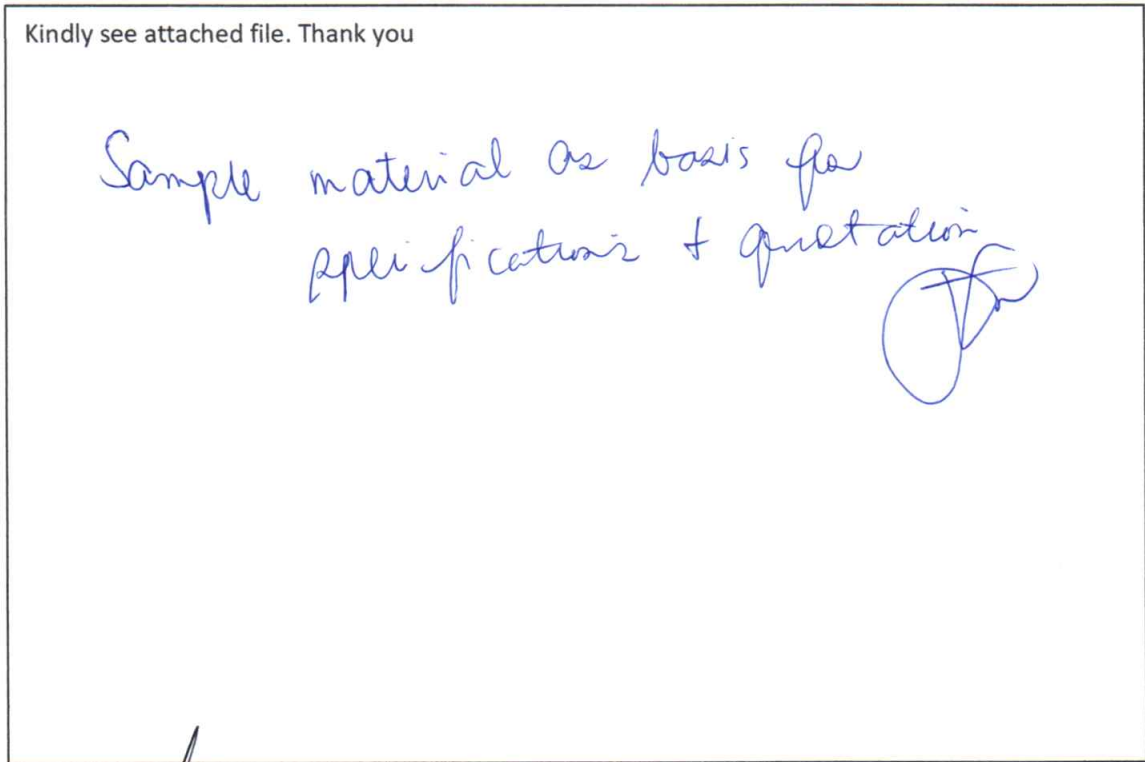 Kindly see attached file. Thank you
Sample material as basis for
specifications + quotation